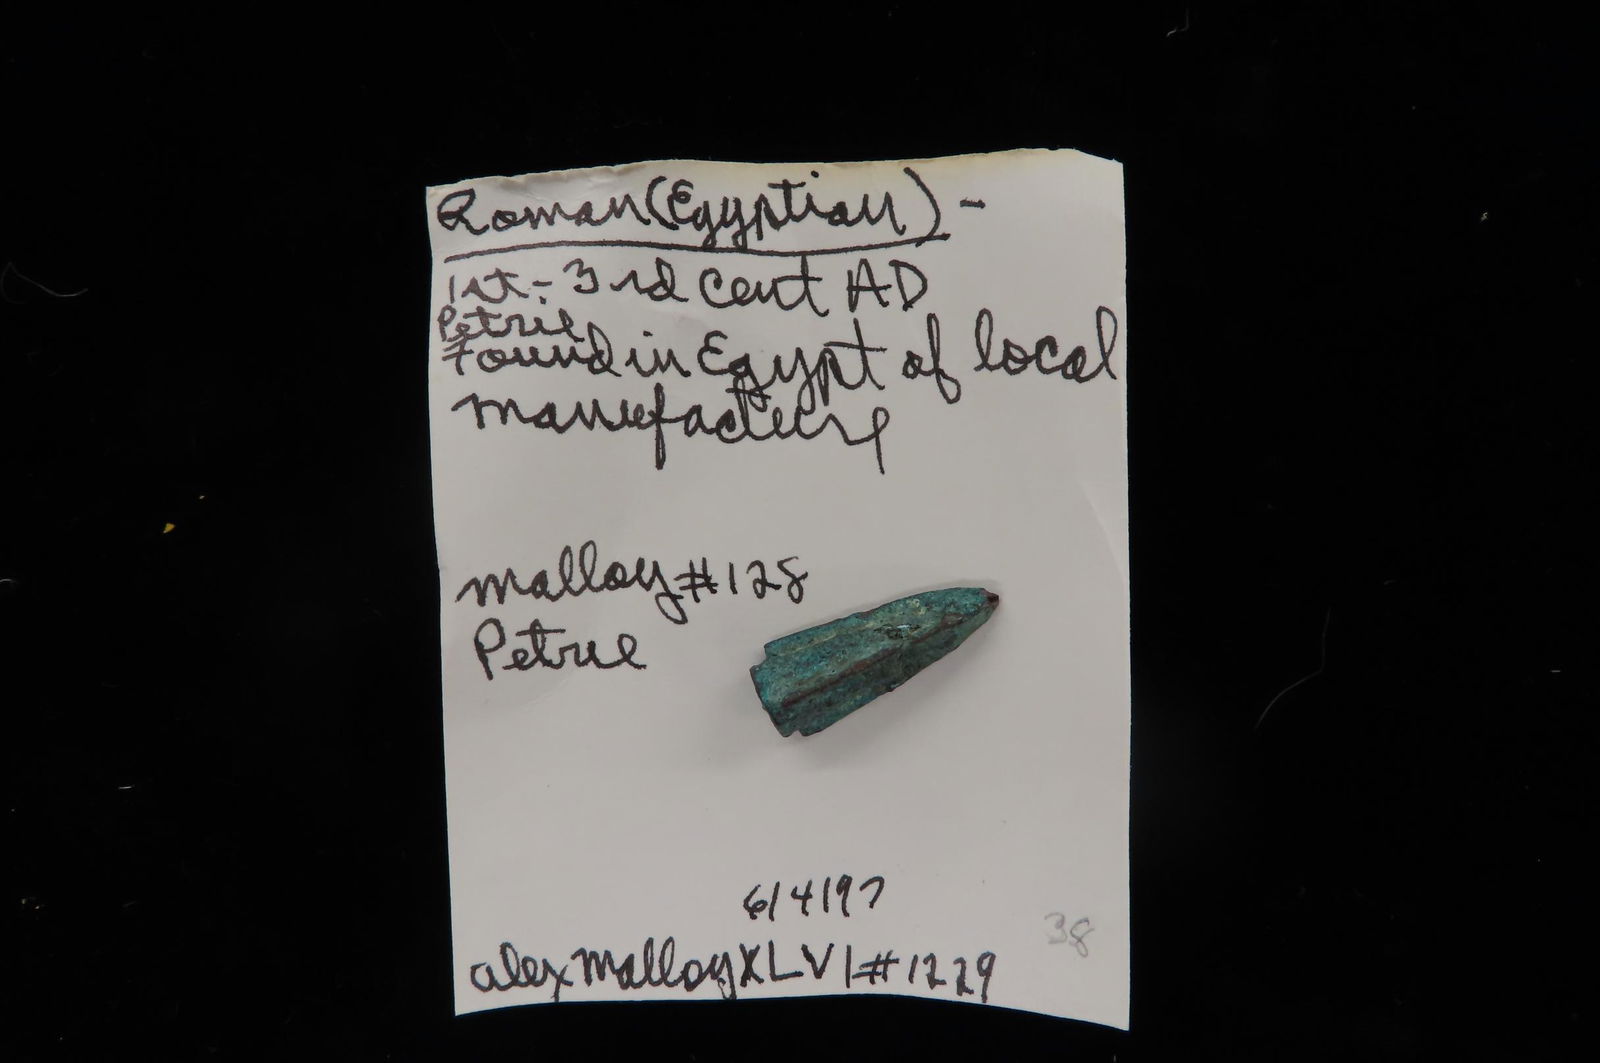 Roman (Egyptian) -
1st - 3rd cent AD
Petrie
Found in Egypt of local
manufacture
Malloy #128
Petrie
6/4/97
38
alex malloy XLVI #1229